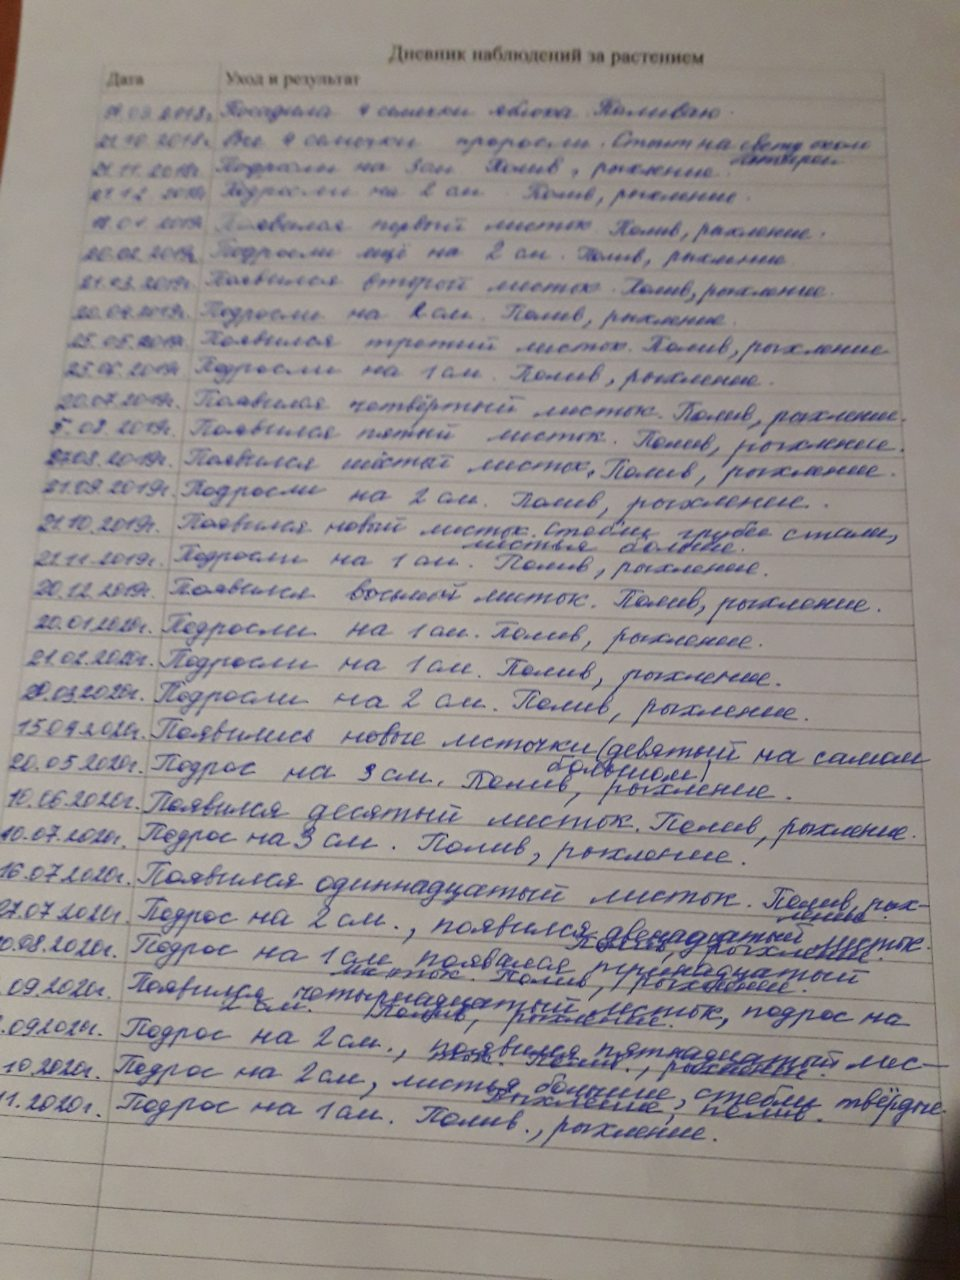 Дневник наблюдений за растением
Дата Уход и результат
2018г. Посадила 4 семечки яблока. Поливаю.
21.10.2018г. Все 4 семечки проросли. Стоит на свету около
батареи
21.11.2018г. Подросли на 3см. Полив, рыхление.
21.12.2018г. Подросли на 2 см. Полив, рыхление.
2019г. Появился первый листок. Полив, рыхление.
20.02.2019г. Подросли ещё на 2 см. Полив, рыхление.
21.03.2019г. Появился второй листок. Полив, рыхление.
20.04.2019г. Подросли на 2 см. Полив, рыхление.
25.05.2019г. Появился третий листок. Полив, рыхление
25.06.2019г. Подросли на 1 см. Полив, рыхление.
20.07.2019г. Появился четвёртый листок. Полив, рыхление.
5.08.2019г. Появился пятый листок. Полив, рыхление.
27.08.2019г. Появился шестый листок, Полив, рыхление.
21.09.2019г. Подросли на 2 см. Полив, рыхление.
21.10.2019г. Появился новый листок. Стебли грубее стали,
листья больше.
21.11.2019г. Подросли на 1 см. Полив, рыхление.
20.12.2019г. Появился восьмой листок. Полив, рыхление.
20.01.2020г. Подросли на 1 см. Полив, рыхление.
21.02.2020г. Подросли на 1 см. Полив, рыхление.
20.03.2020г. Подросли на 2 см. Полив, рыхление.
15.04.2020г. Появились новые листочки (девятый на самом
большом)
20.05.2020г. Подрос на 3 см. Полив, рыхление.
10.06.2020г. Появился десятый листок. Полив, рыхление.
10.07.2020г. Подрос на 3 см. Полив, рыхление.
16.07.2020г. Появился одиннадцатый листок. Полив, рых-
ление.
27.07.2020г. Подрос на 2 см., появился двенадцатый листок.
Полив, рыхление.
20.08.2020г. Подрос на 1 см, появился тринадцатый
листок. Полив, рыхление.
.09.2020г. Появился четырнадцатый листок, подрос на
2 см. Полив, рыхление.
.09.2020г. Подрос на 2 см., появился пятнадцатый лис-
ток. Полив., рыхление.
10.2020г. Подрос на 2 см, листья больше, стебли твёрдые.
Рыхление, полив.
11.2020г. Подрос на 1 см. Полив., рыхление.